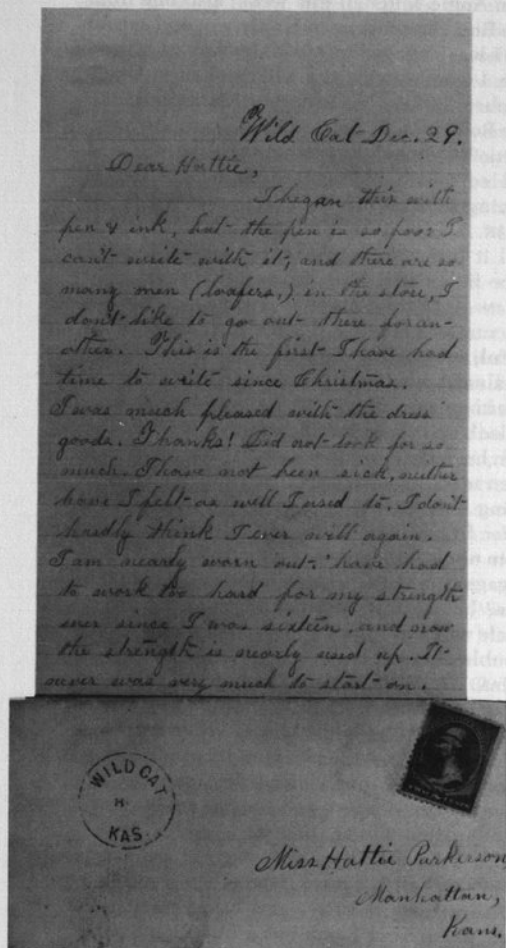 Wild Cat Dec. 29.
Dear Hattie,
I began this with
pen & ink, but the pen is so poor I
can't write with it, and there are so
many men (loafers,) in the store, I
don't like to go out there for an-
other. This is the first I have had
time to write since Christmas.
I was much pleased with the dress
goods. Thanks! Did not look for so
much. I have not been sick, neither
have I felt as well I used to. I don't
hardly think I ever will again.
I am nearly worn out; have had
to work too hard for my strength
ever since I was sixteen, and now
the strength is nearly used up. It
never was very much to start on.
WILD CAT
KAS
Miss Hattie Parkerson,
Manhattan,
Kans.